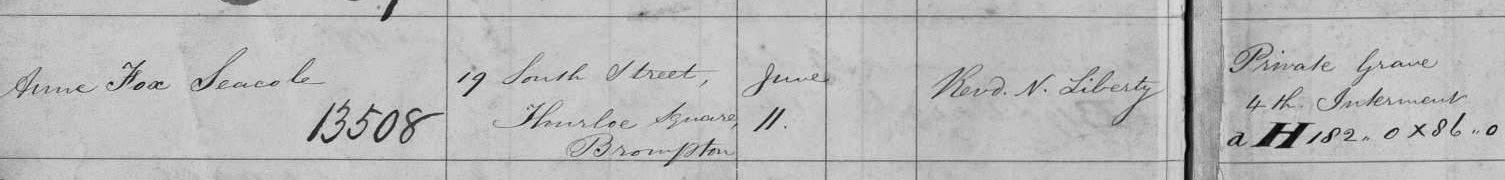 Anne Fox Seacole
13508
19 South Street,
Thurloe Square,
Brompton
June
11.
Revd. N. Liberty
Private Grave
4th Interment
a H 182"0 X 86"0